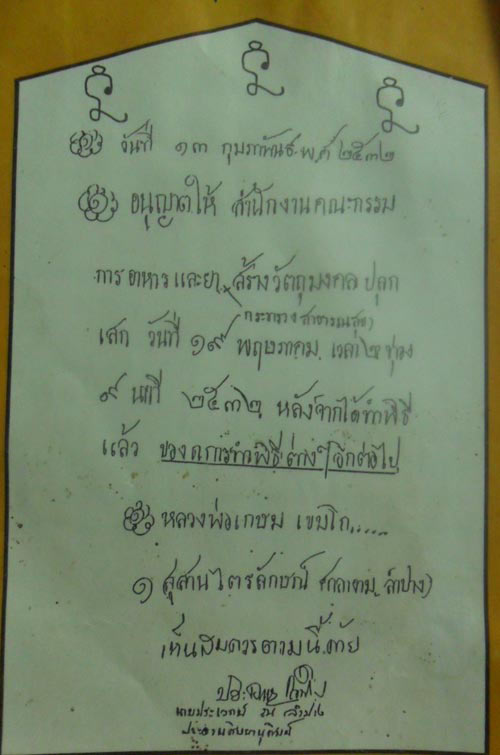 วันที่ ๑๓ กุมภาพันธ์ พ.ศ ๒๕๓๒
อนุญาตให้ สำนักงานคณะกรรม
การ อาหาร และยา สร้างวัตถุมงคล ปลุก
(กระทรวง สาธารณสุข)
เสก วันที่ ๑๙ พฤษภาคม เวลา
๙ นาที ๒๕๓๒ หลังจากได้ทำพิธี
แล้ว ของดการทำพิธีต่างๆ อีกต่อไป
หลวงพ่อเกษม เขมโก.....
๑ สุสานไตรลักษณ์ (ลำปาง)
เห็นสมควรตามนี้ด้วย